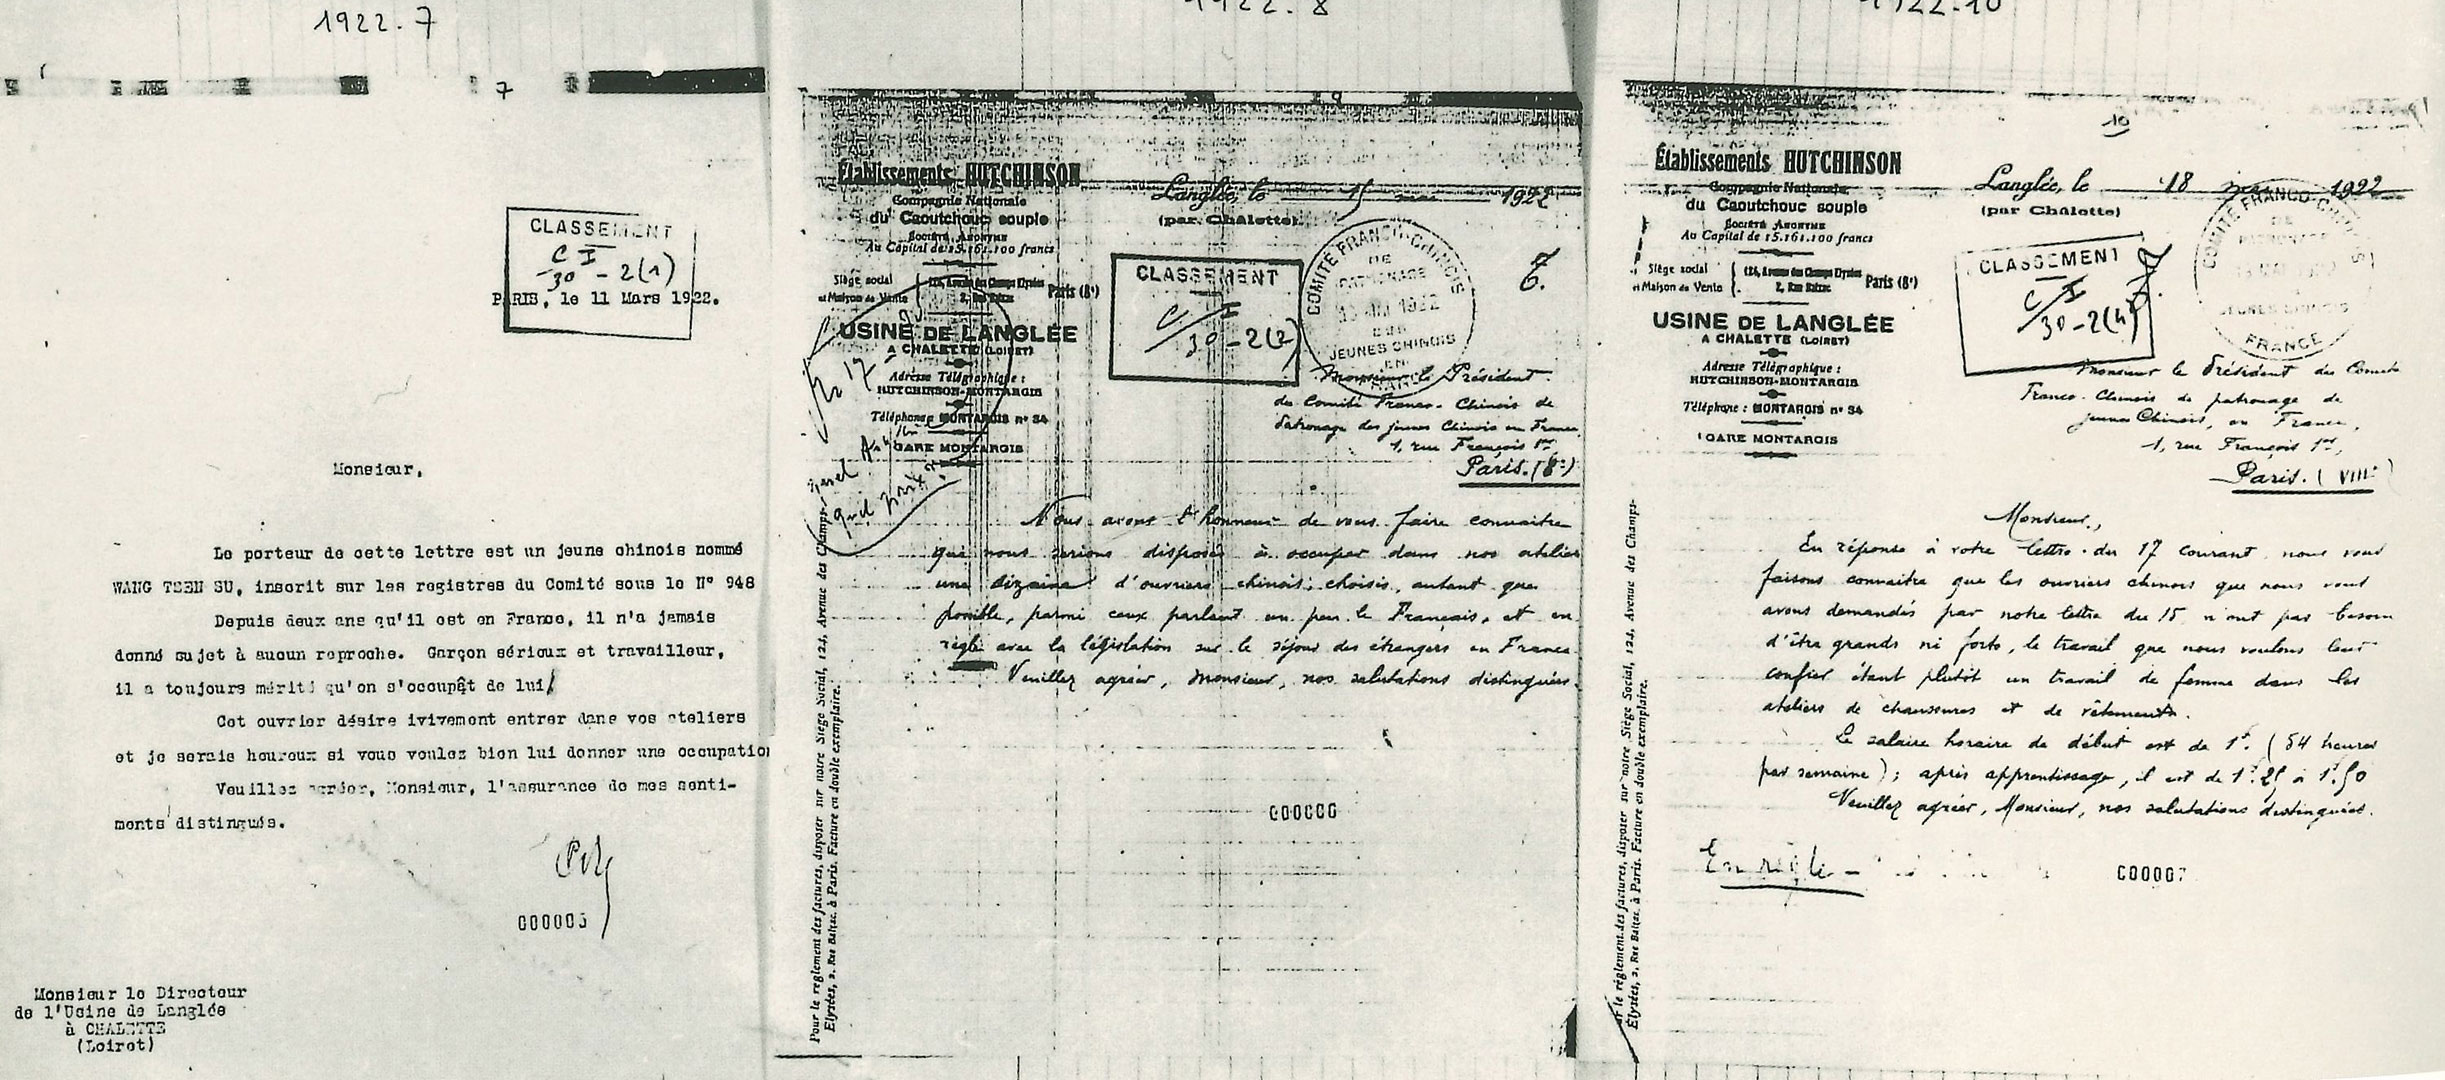 1922.7
7
CLASSEMENT
C I
30 - 2(1)
PARIS, le 11 Mars 1922.
Monsieur,
Le porteur de cette lettre est un jeune chinois nommé
WANG TSEN SU, inscrit sur les registres du Comité sous le N° 948
Depuis deux ans qu'il est en France, il n'a jamais
donné sujet à aucun reproche. Garçon sérieux et travailleur,
il a toujours mérité qu'on s'occupât de lui
Cet ouvrier désire ivivement entrer dans vos ateliers
et je serais heureux si vous voulez bien lui donner une occupation
Veuillez agréer, Monsieur, l'assurance de mes senti-
ments distingués.
000005
Monsieur le Directeur
de l'Usine de Langlée
à CHALETTE
(Loiret)
1922.8
Établissements HUTCHINSON
Compagnie Nationale
du Caoutchouc souple
Société Anonyme
Au Capital de 15.161.100 francs
Siège social
et Maison de Vente
124, Avenue des Champs Elysées
2, Rue Balzac
Paris (8e)
USINE DE LANGLÉE
A CHALETTE (LOIRET)
Adresse Télégraphique :
HUTCHINSON-MONTARGIS
Téléphone : MONTARGIS n° 34
GARE MONTARGIS
Langlée, le 15 mars 1922
(par Châlette)
CLASSEMENT
C I
30 - 2(2)
COMITÉ FRANCO-CHINOIS
DE
PATRONAGE
1922
DES
JEUNES CHINOIS
EN
FRANCE
quel prix?
Monsieur le Président
du Comité Franco-Chinois de
Patronage des jeunes Chinois en France,
1, rue François 1er
Paris. (8e)
Nous avons l'honneur de vous faire connaître
que nous serions disposés à occuper dans nos ateliers
une dizaine d'ouvriers chinois, choisis, autant que
possible, parmi ceux parlant un peu le Français, et en
règle avec la législation sur le séjour des étrangers en France.
Veuillez agréer, Monsieur, nos salutations distinguées.
Pour le règlement des factures, disposer sur notre Siège Social, 124, Avenue des Champs-
Elysées, 2, Rue Balzac, à Paris. Facture en double exemplaire.
1922.10
10
Établissements HUTCHINSON
Compagnie Nationale
du Caoutchouc souple
Société Anonyme
Au Capital de 15.161.100 francs
Siège social
et Maison de Vente
124, Avenue des Champs Elysées
2, Rue Balzac
Paris (8e)
USINE DE LANGLÉE
A CHALETTE (LOIRET)
Adresse Télégraphique :
HUTCHINSON-MONTARGIS
Téléphone : MONTARGIS n° 34
GARE MONTARGIS
Langlée, le 18 mars 1922
(par Châlette)
CLASSEMENT
C I
30 - 2(4)
COMITÉ FRANCO-CHINOIS
DE
PATRONAGE
JEUNES CHINOIS
FRANCE
Monsieur le Président du Comité
Franco-Chinois de patronage de
jeunes Chinois, en France,
1, rue François 1er,
Paris. (VIIIe)
Monsieur,
En réponse à votre lettre du 17 courant nous vous
faisons connaître que les ouvriers chinois que nous vous
avons demandés par notre lettre du 15 n'ont pas besoin
d'être grands ni forts, le travail que nous voulons leur
confier étant plutôt un travail de femme dans les
ateliers de chaussures et de vêtements.
Le salaire horaire de début est de 1f. (54 heures
par semaine); après apprentissage, il est de 1f.25 à 1f.50
Veuillez agréer, Monsieur, nos salutations distinguées.
En règle -
le règlement des factures, disposer sur notre Siège Social, 124, Avenue des Champs-
Elysées, 2, Rue Balzac, à Paris. Facture en double exemplaire.